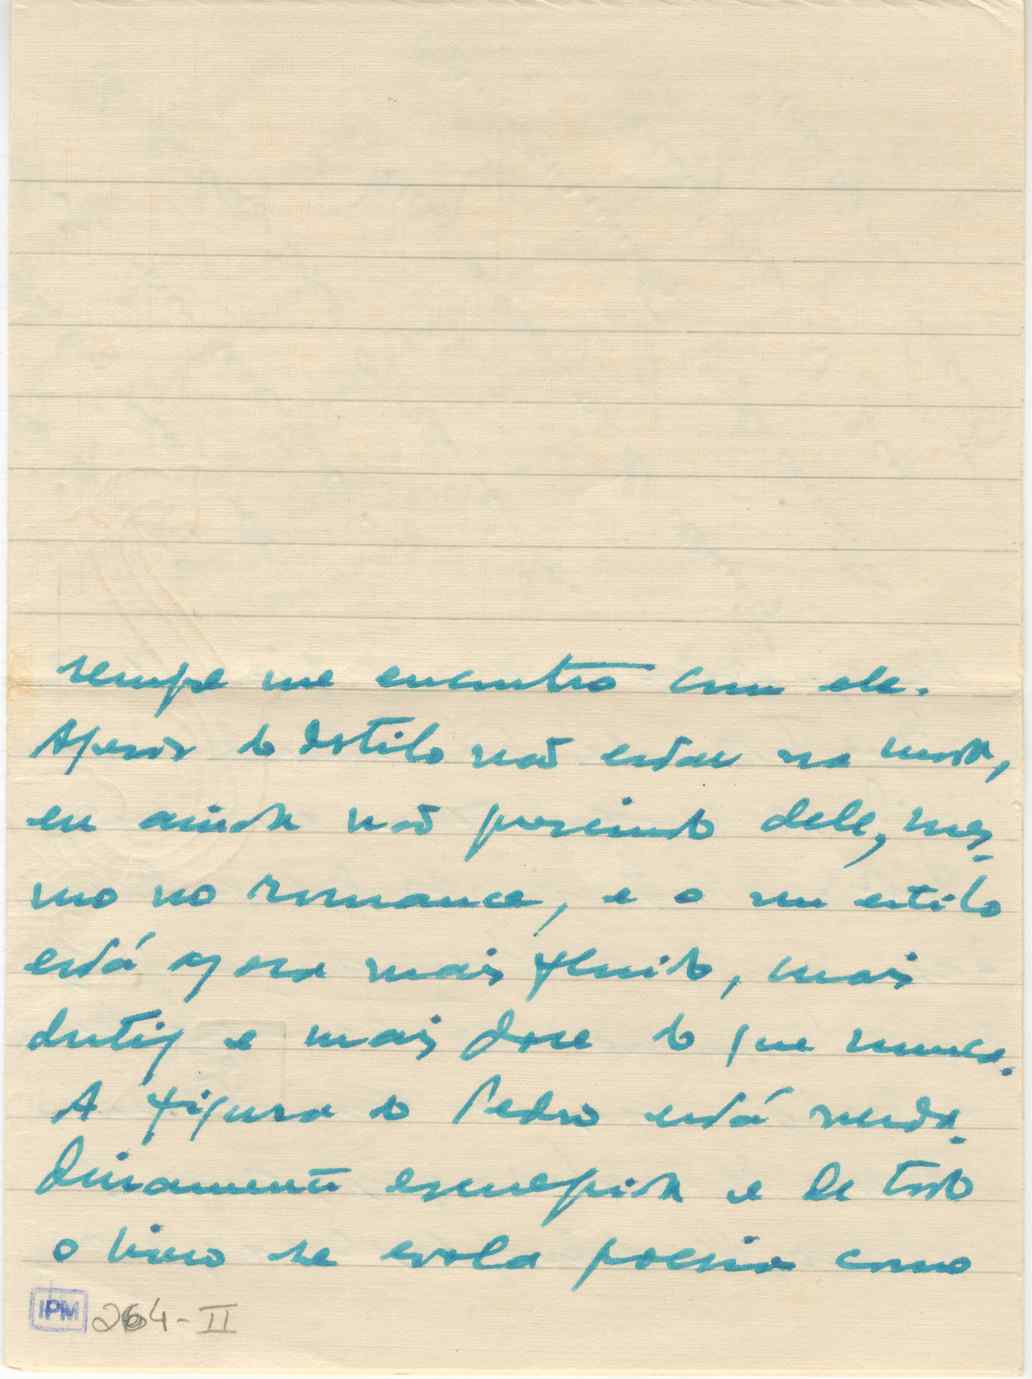 sempre me encontro com ele.
Apesar do estilo não estar na moda,
eu ainda não prescindo dele, mes-
mo no romance, e o seu estilo
está agora mais fluido, mais
dútil e mais doce do que nunca.
A figura do Pedro está verda-
deiramente esculpida e de todo
o livro se evola poesia como
IPM 264-II